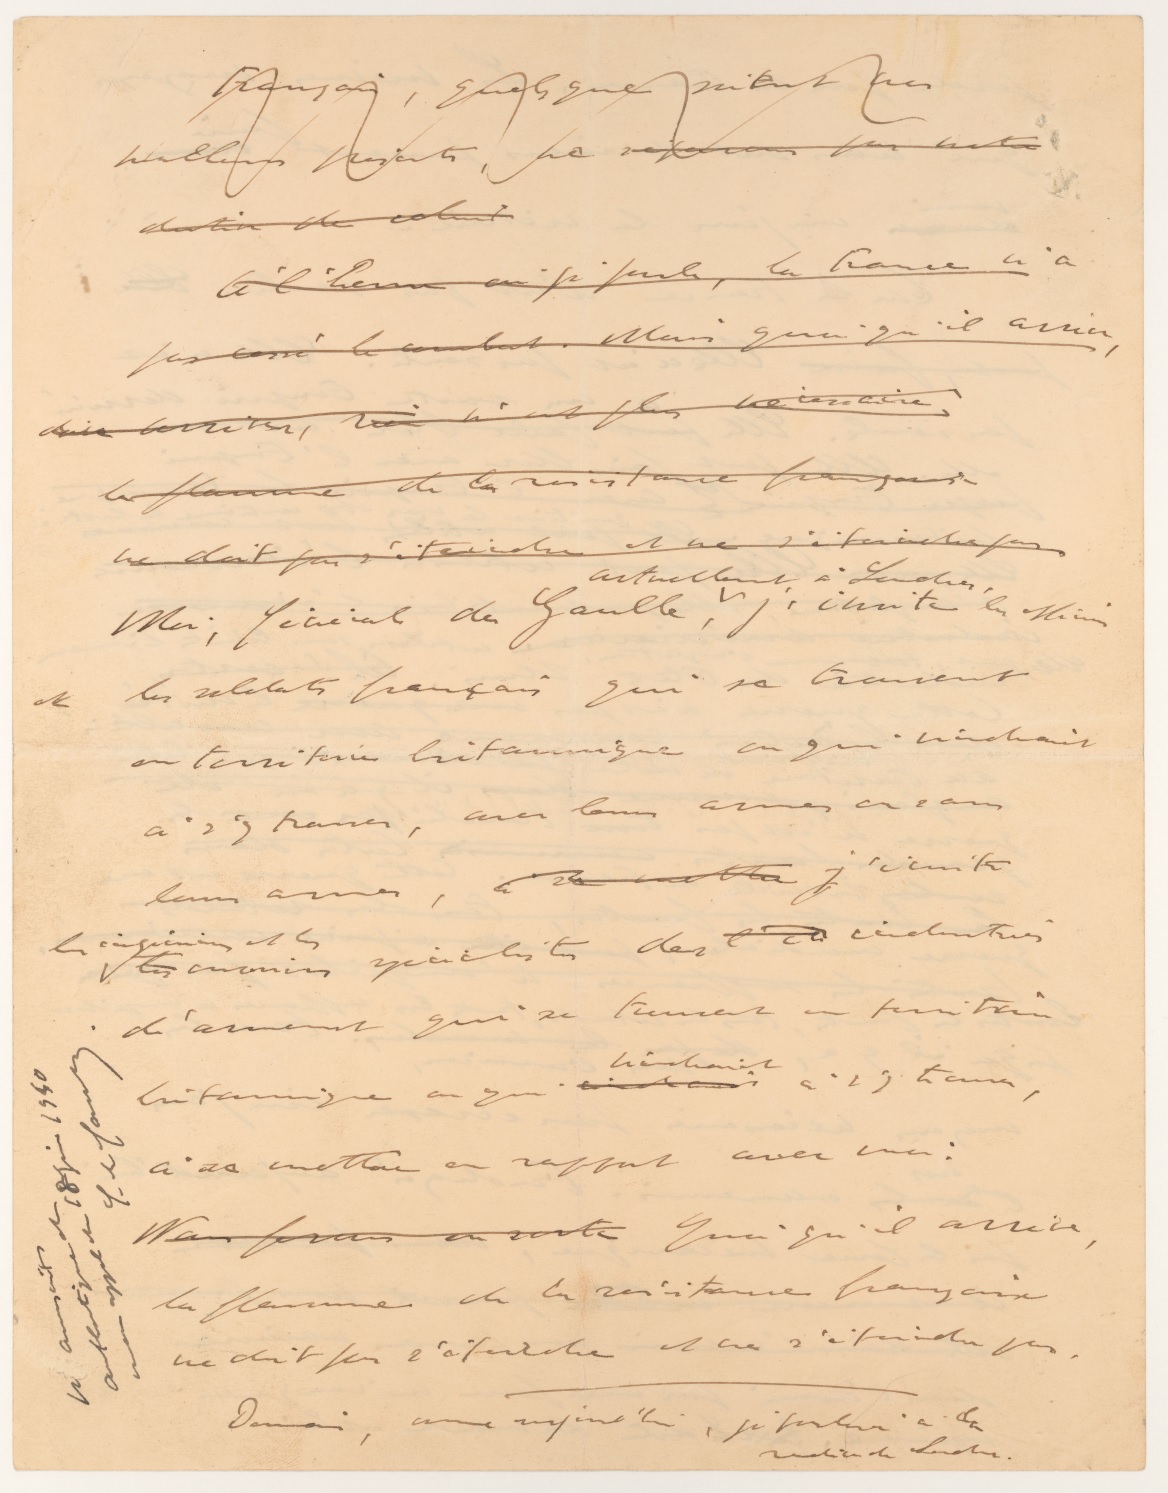 Français, quels que soient nos
malheurs présents, je ne
destin de
A l'heure où je parle, la France n'a
pas cessé le combat. Mais quoi qu'il arrive,
doive arriver, rien n'est plus nécessaire
la flamme de la résistance française
ne doit pas s'éteindre et ne s'éteindra pas
actuellement à Londres,
Moi, Général de Gaulle, j'invite les officiers
et les soldats français qui se trouvent
en territoire britannique ou qui viendraient
à s'y trouver, avec leurs armes ou sans
leurs armes, à se mettre j'invite
les ingénieurs et les
les ouvriers spécialistes des industries
d'armement qui se trouvent en territoire
viendraient
britannique ou qui viendraient à s'y trouver,
à se mettre en rapport avec moi.
Quoi qu'il arrive,
la flamme de la résistance française
ne doit pas s'éteindre et ne s'éteindra pas.
Demain, comme aujourd'hui, je parlerai à la
radio de Londres.
manuscrit
authentique du 18 juin 1940
mon appel